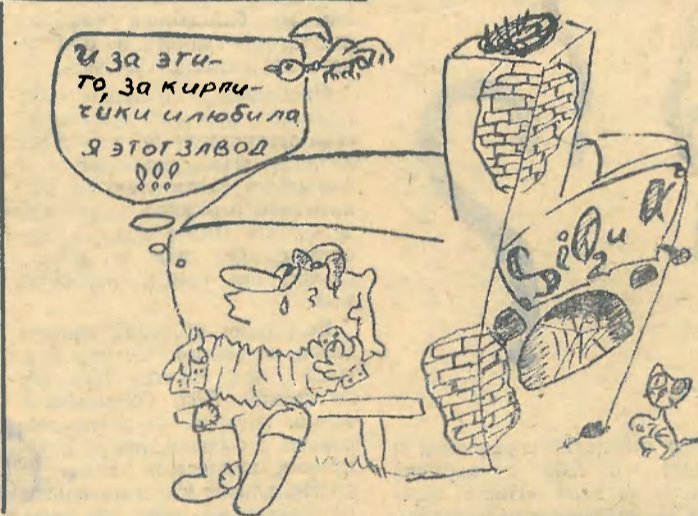 И за эти-
то, за кирпи-
чики и любила
я этот завод
!!!
SiO₂ и К